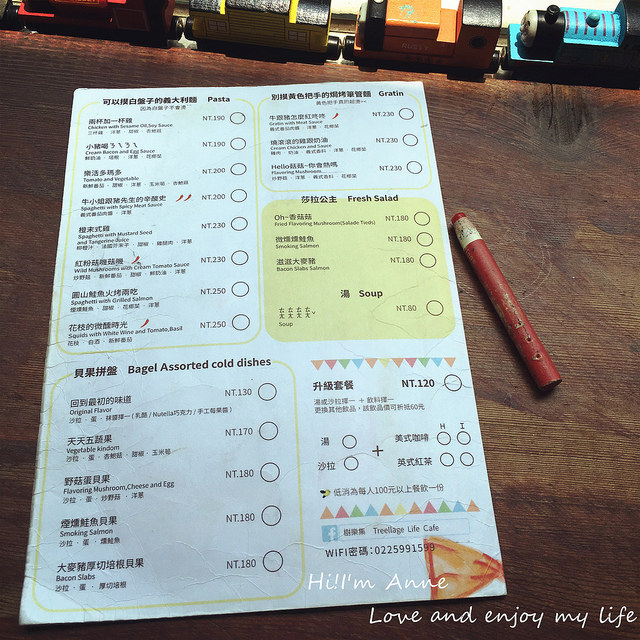 可以摸白盤子的義大利麵 Pasta
因為白盤子不會燙
兩杯加一杯雞 NT.190
Chicken with Sesame Oil,Soy Sauce
三杯雞 . 洋蔥 . 甜椒 . 杏鮑菇
小豬嘓ㄋㄋㄋ NT.190
Cream Bacon and Egg Sauce
鮮奶油 . 培根 . 洋蔥 . 花椰菜
樂活多瑪多 NT.200
Tomato and Vegetable
新鮮番茄 . 甜椒 . 洋蔥 . 玉米筍 . 杏鮑菇
牛小姐跟豬先生的辛酸史 NT.200
Spaghetti with Spicy Meat Sauce
義式番茄肉醬 . 洋蔥
橙末式雞 NT.230
Spaghetti with Mustard Seed
and Tangerine Juice
柳橙汁 . 法國芥末子 . 甜椒 . 雞腿肉 . 洋蔥
紅粉菇嘰菇嘰 NT.230
Wild Mushrooms with Cream Tomato Sauce
炒野菇 . 新鮮番茄 . 甜椒 . 鮮奶油 . 洋蔥
圓山鮭魚火烤兩吃 NT.250
Spaghetti with Grilled Salmon
煙燻鮭魚 . 甜椒 . 花椰菜 . 洋蔥
花枝的微醺時光 NT.250
Squids with White Wine and Tomato,Basil
花枝 . 白酒 . 新鮮番茄
別摸黃色把手的焗烤筆管麵 Gratin
黃色把手真的超燙~~
牛跟豬怎麼紅咚咚 NT.230
Gratin with Meat Sauce
義式番茄肉醬 . 洋蔥 . 花椰菜
燒滾滾的雞跟奶油 NT.230
Cream Chicken and Sauce
雞肉 . 奶油 . 義式香料 . 洋蔥 . 花椰菜
Hello菇菇~你會熱嗎 NT.230
Flavoring Mushroom
炒野菇 . 洋蔥 . 義式香料 . 花椰菜
莎拉公主 Fresh Salad
Oh~香菇菇 NT.180
Fried Flavoring Mushroom(Salade Tieds)
微燻燻鮭魚 NT.180
Smoking Salmon
滋滋大麥豬 NT.180
Bacon Slabs Salmon
湯 Soup
NT.80
Soup
貝果拼盤 Bagel Assorted cold dishes
回到最初的味道 NT.130
Original Flavor
沙拉 . 蛋 . 抹醬擇一 ( 乳酪 / Nutella巧克力 / 手工莓果醬 )
天天五蔬果 NT.170
Vegetable kindom
沙拉 . 蛋 . 杏鮑菇 . 甜椒 . 玉米筍
野菇蛋貝果 NT.180
Flavoring Mushroom,Cheese and Egg
沙拉 . 蛋 . 炒野菇 . 洋蔥
煙燻鮭魚貝果 NT.180
Smoking Salmon
沙拉 . 蛋 . 燻鮭魚
大麥豬厚切培根貝果 NT.180
Bacon Slabs
沙拉 . 蛋 . 厚切培根
升級套餐 NT.120
湯或沙拉擇一 + 飲料擇一
更換其他飲品，該飲品價可折抵60元
H I
湯 + 美式咖啡
沙拉 英式紅茶
低消為每人100元以上餐飲一份
樹樂集 Treellage Life Cafe
WIFI密碼:0225991599
Hi!I'm Anne
Love and enjoy my life